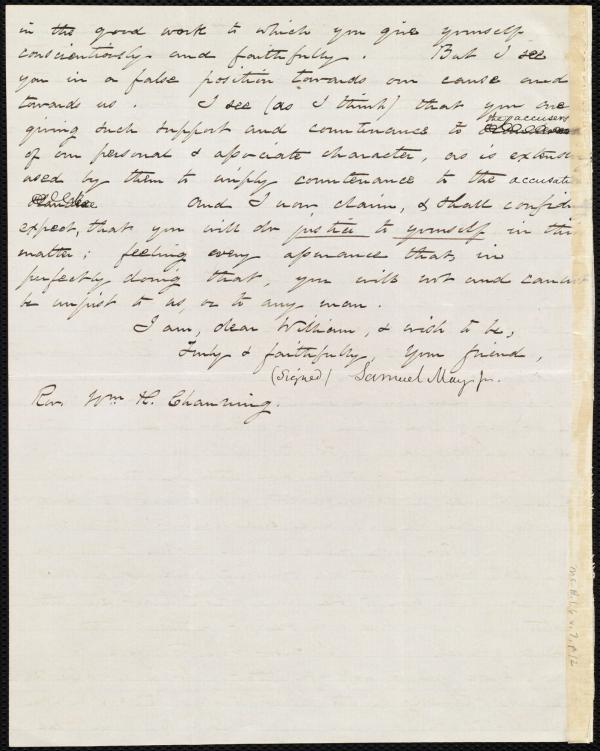 in the good work to which you give yourself
conscientiously and faithfully. But I see
you in a false position towards our cause and
towards us. I see (as I think) that you are
the accusers
giving such support and countenance to
of our personal & associate character, as is
used by them to imply countenance to the
And I now claim, & shall
expect, that you will do justice to yourself in this
matter; feeling every assurance that, in
perfectly doing that, you will not and cannot
be unjust to us, or to any man.
I am, dear William, & wish to be,
Truly & faithfully, Your friend,
(Signed) Samuel May, Jr.
Rev. Wm H. Channing.